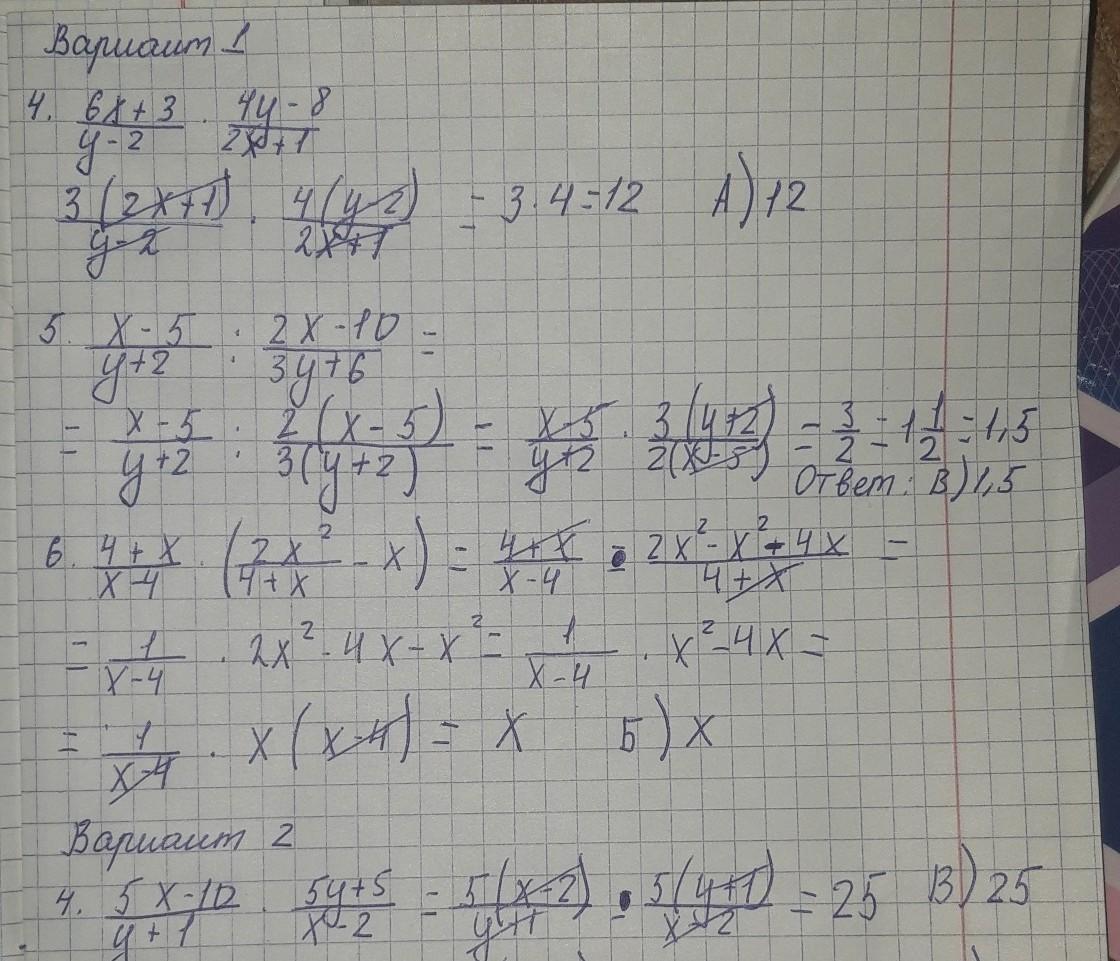 Вариант 1
4. (6x+3)/(y-2) · (4y-8)/(2x+1)
3(2x+1)/(y-2) · 4(y-2)/(2x+1) = 3·4=12 А) 12
5. (x-5)/(y+2) : (2x-10)/(3y+6) =
= (x-5)/(y+2) : 2(x-5)/3(y+2) = (x-5)/(y+2) · 3(y+2)/2(x-5) = 3/2 = 1 1/2 = 1,5
Ответ: В) 1,5
6. (4+x)/(x-4) · (2x²/(4+x) - x) = (4+x)/(x-4) · (2x²-x²+4x)/(4+x) =
= 1/(x-4) · 2x²-4x-x² = 1/(x-4) · x²-4x =
= 1/(x-4) · x(x-4) = x Б) x
Вариант 2
4. (5x-10)/(y+1) · (5y+5)/(x-2) = 5(x-2)/(y+1) · 5(y+1)/(x-2) = 25 В) 25